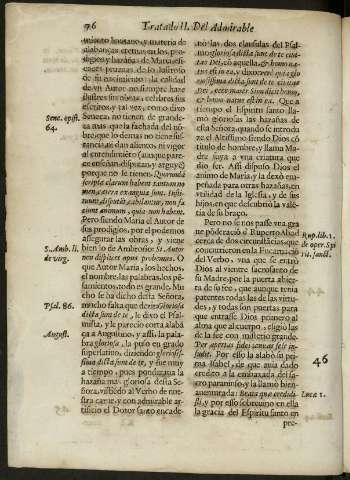 76
Tratado II. Del Admirable
miento humano, y materia de
alabanças eternas en los pro-
digios y hazañas de Maria, esti-
la calidad de
ilustres sus obras, celebres sus
escritos; y tal vez, como dixo
Seneca, no tienen de grande-
za mas que la fachada del nõ-
Senec. epist.
64.
bre, que lo demas no tiene sus-
tancia: ni dan alientos, ni vigor
al entendimiento (aunque pare-
ce enseñan, disputan, y arguyẽ)
porque no le tienen. Quorundã
scripta clarum habent tantum no-
men, cætera exangua sunt. Insti-
tuunt, disputant, cabillantur, non fa-
ciunt animum, quia non habent.
Pero siendo Maria el Autor de
sus prodigios, por el podemos
assegurar las obras, y viene
bien lo de Ambrosio:
S. Amb. li.
de virg.
O
que Autor Maria, los hechos,
el nombre, las palabras, los pẽ-
samientos, todo es grande. Mu-
cho se ha dicho desta Señora,
mucho falta que dezir. Gloriosa
Psal. 86.
dicta sunt de te, le dixo el Psal-
mista, y le parecio corta alabã-
August.
ça a Augustino, y assi, la pala-
bra gloriosa, la puso en grado
superlatiuo, diziendo: gloriosis-
sima dicta sunt de te, y fue muy
a tiempo, pues ponderaua la
hazaña mas gloriosa desta Se-
ñora, vistiẽdo al Verbo de nues-
tra carne, y con admirable ar-
tificio el Dotor santo encade-
nò las dos clausulas del Psal-
mo: gloriosa dicta sunt de te ciui-
tas Dei, cõ aquella, & homo na-
tus est in ea, y dixo: vere quia glo-
riosissima dicta sunt de te ciuitas
Dei,
& homo natus est in ea. Que a
tiempo el Espiritu santo lla-
mò gloriosas las hazañas de
esta Señora, quando se introdu-
ze el Altissimo siendo Dios cõ
titulo de hombre, y llama Ma-
dre suya a vna criatura que
dio ser. Assi dispuso Dios el
animo de Maria, y la dexò em-
peñada para otras hazañas, en
vtilidad de la Iglesia, y de sus
hijos, en que descubriò la valẽ-
tia de su braço.
Pero no se nos passe vna grã
que põderaciõ de Ruperto Abad
cerca de dos circunstãcias, que
Rup. lib. 1.
de oper. Spi
rit. sanct.
concurrieron en la Encarnaciõ
del Verbo, vna que se entrò
Dios al vientre sacrosanto de
su Madre, por la puerta abier-
ta de su fee, que aunque tenia
patentes todas las de las virtu-
des, y todas son puertas para
que entrasse Dios primero al
alma que al cuerpo, eligiò las
de la fee con misterio grande:
Per apertas fidei ianuas sese in-
fudit. Por esso la alabò su pri-
46
ma Isabel, de que auia dado
credito a la embaxada del sa-
cro paraninfo, y la llamò bien
auenturada: Beata quæ credidi-
Lucæ 1.
sti, y por esso sobreuino en ella
la gracia del Espiritu santo en
pre-